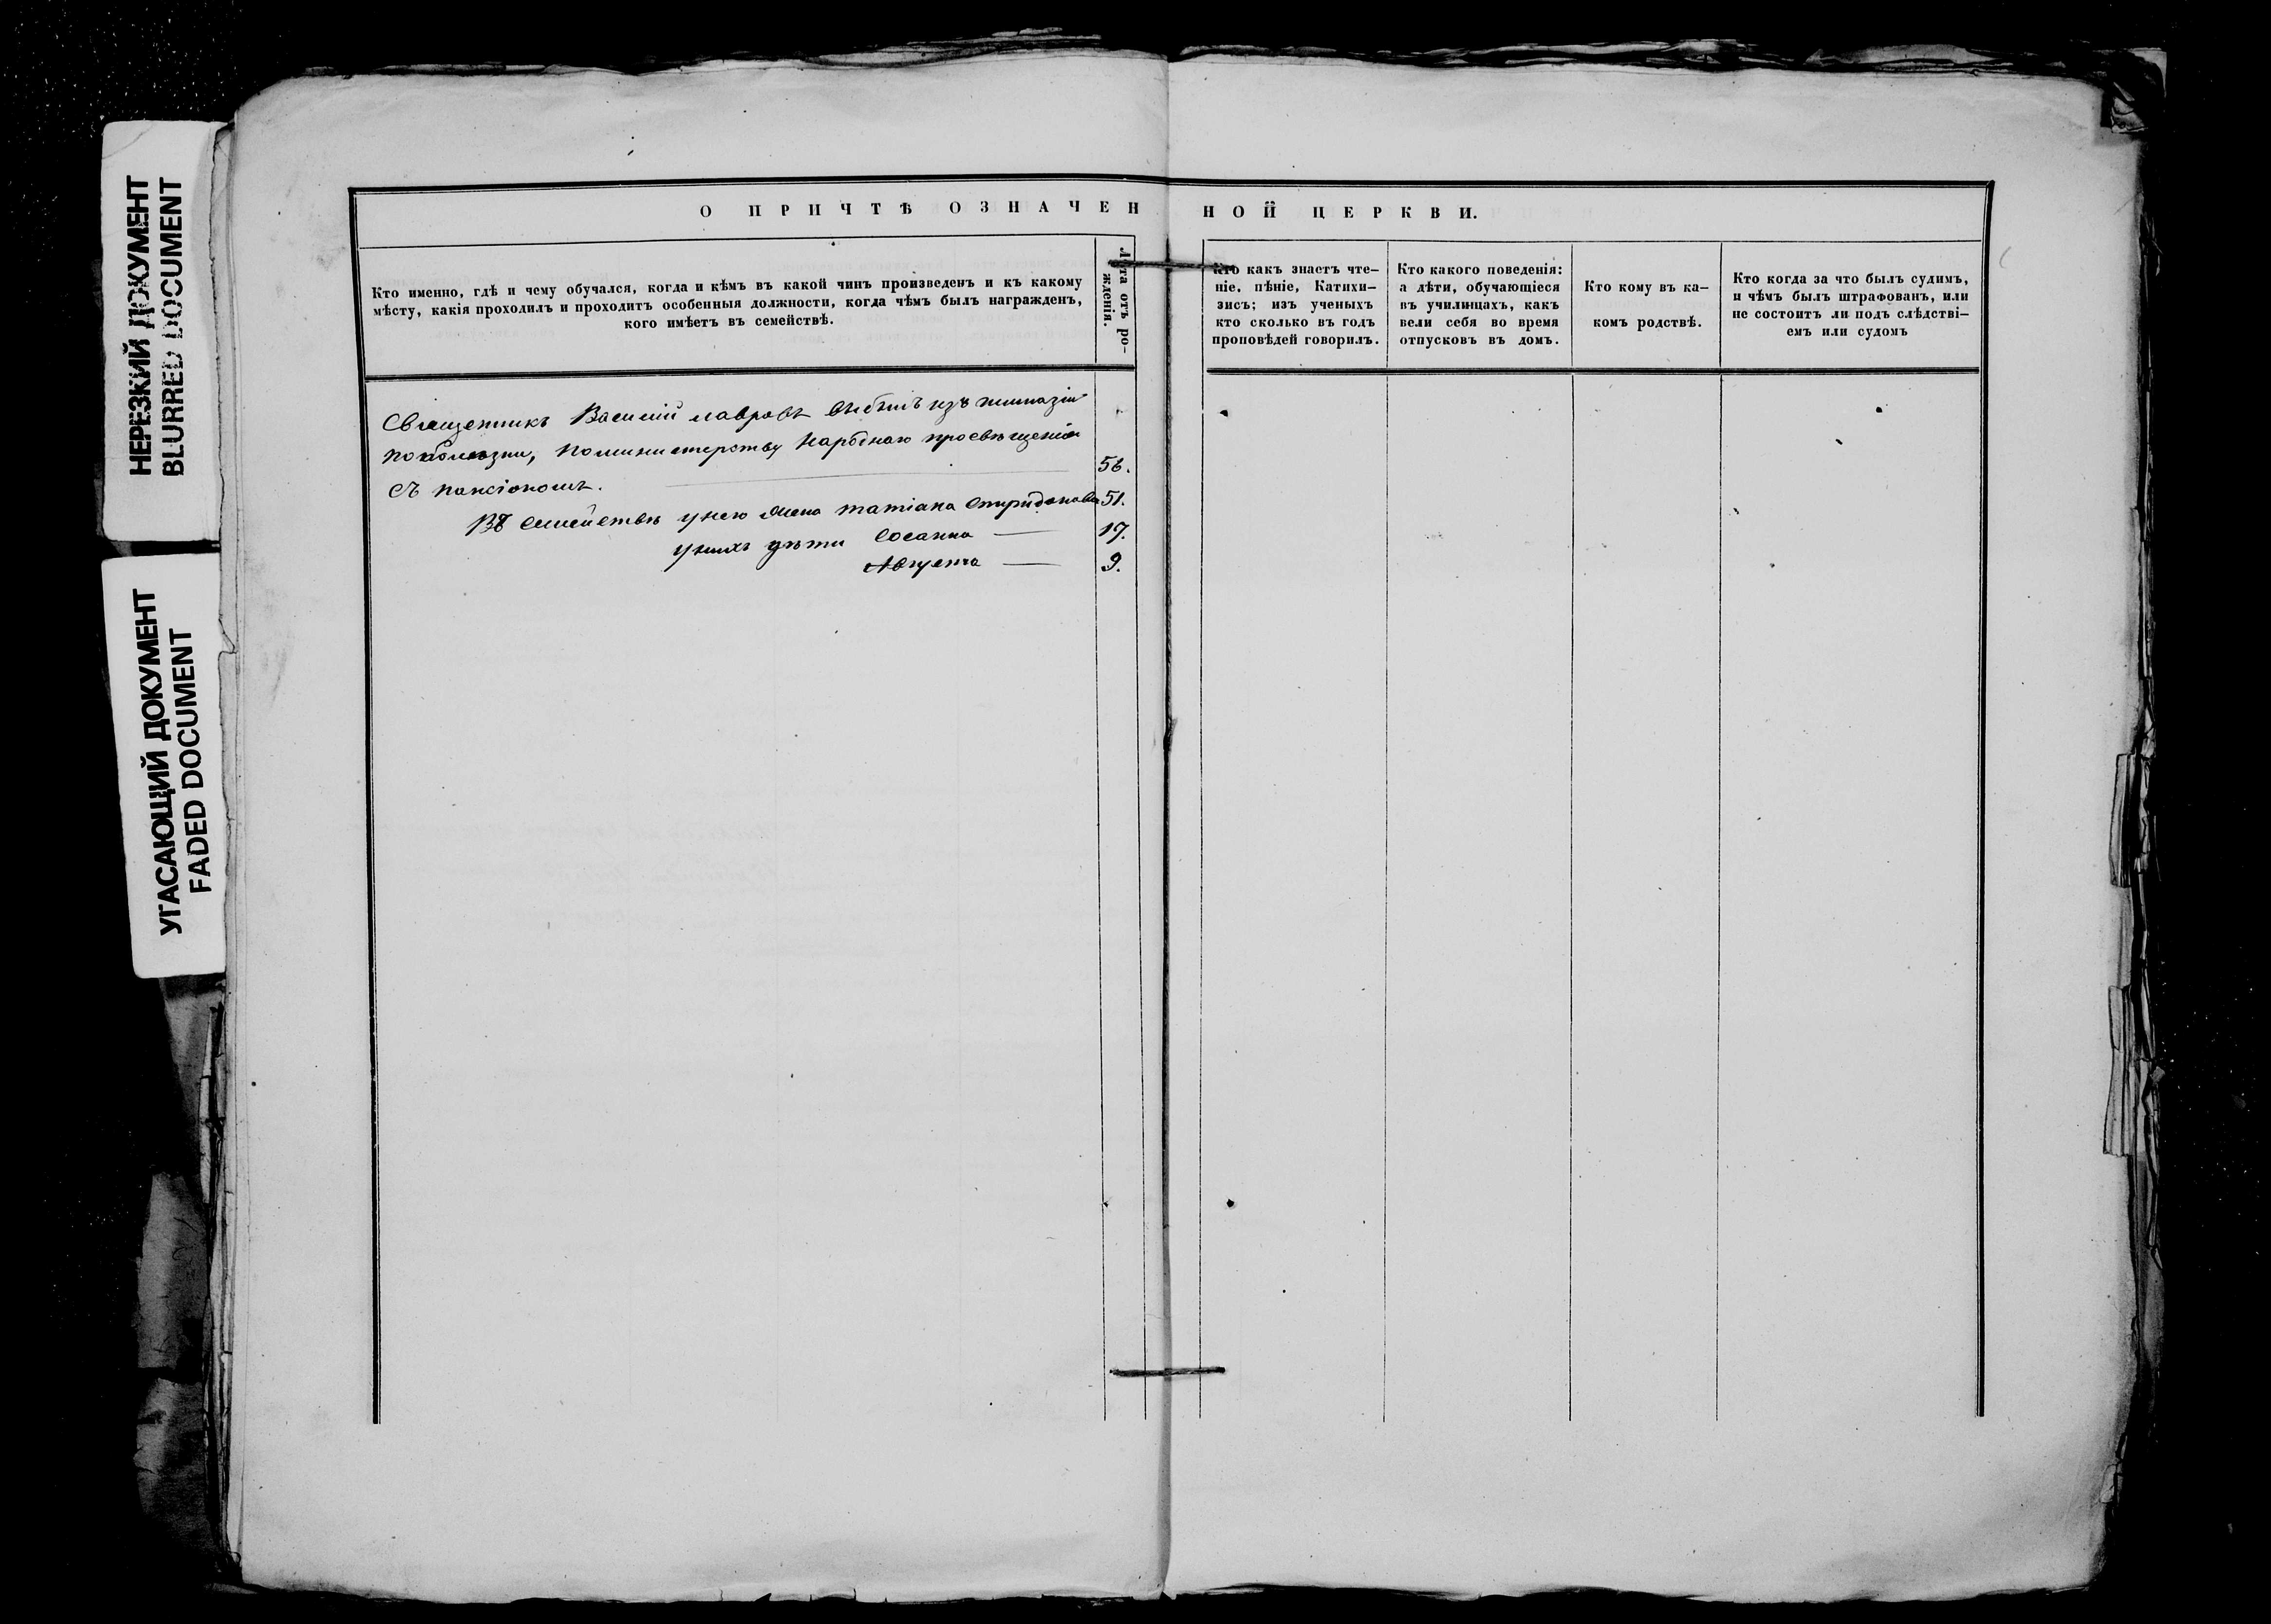 НЕРЕЗКИЙ ДОКУМЕНТ
BLURRED DOCUMENT
УГАСАЮЩИЙ ДОКУМЕНТ
FADED DOCUMENT
О ПРИЧТѢ ОЗНАЧЕННОЙ ЦЕРКВИ.
Кто именно, гдѣ и чему обучался, когда и кѣмъ въ какой чинъ произведенъ и къ какому
мѣсту, какія проходилъ и проходитъ особенныя должности, когда чѣмъ былъ награжденъ,
кого имѣетъ въ семействѣ.
Лѣта отъ ро-
жденія.
Кто какъ знаетъ чте-
ніе, пѣніе, Катихи-
зисъ; изъ ученыхъ
кто сколько въ годъ
проповѣдей говорилъ.
Кто какого поведенія:
а дѣти, обучающіеся
въ училищахъ, какъ
вели себя во время
отпусковъ въ домъ.
Кто кому въ ка-
комъ родствѣ.
Кто когда за что былъ судимъ,
и чѣмъ былъ штрафованъ, или
не состоитъ ли подъ слѣдстві-
емъ или судомъ
Священникъ Василій Лавровъ выбылъ изъ гимназіи
по болѣзни, по министерству народнаго просвѣщенія
съ пансіономъ. 56.
Въ семействѣ у него жена Татіана Спиридонова 51.
у нихъ дѣти Сосанна — 17.
Августа — 9.